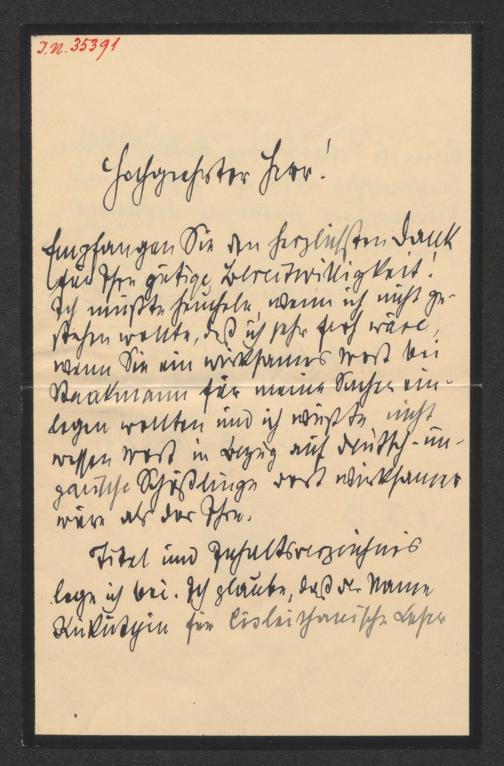 I.N. 35391
Hochgeehrter Herr!
Empfangen Sie den herzlichsten Dank
für Ihre gütige Bereitwilligkeit!
Ich müßte heucheln, wenn ich nicht ge-
stehen wollte, daß ich sehr froh wäre,
wenn Sie ein wirksames Wort bei
Staakmann für meine Sachen ein-
legen wollten und ich wüßte nicht
wessen Wort in Bezug auf deutsch-un-
garische Schößlinge dort wirksamer
wäre als das Ihre.
Titel und Inhaltsverzeichnis
lege ich bei. Ich glaube, daß der Name
für cisleithanische Leser